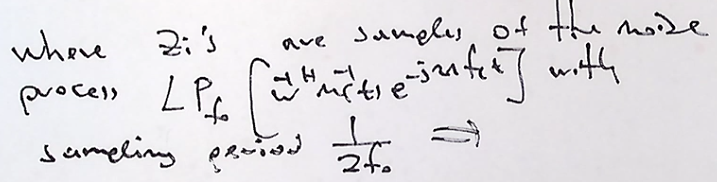 where Zi's are samples of the noise
process LP_{f_0} [ \vec{w}^H \vec{n}(t) e^{-j2πf_c t} ] with
sampling period \frac{1}{2f_0} ⇒